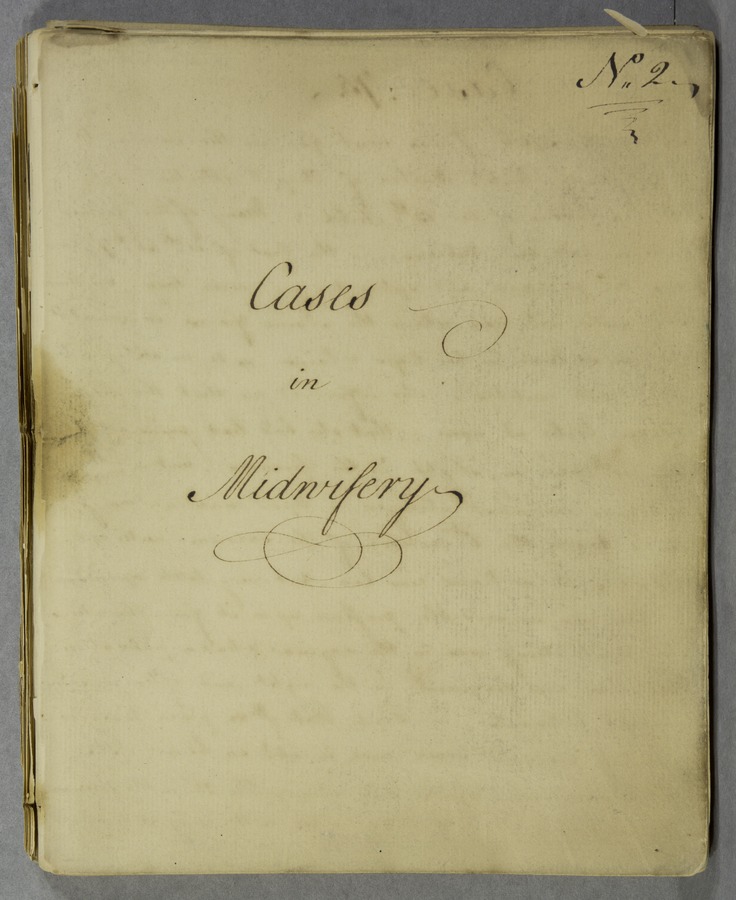 No. 2.
Cases
in
Midwifery